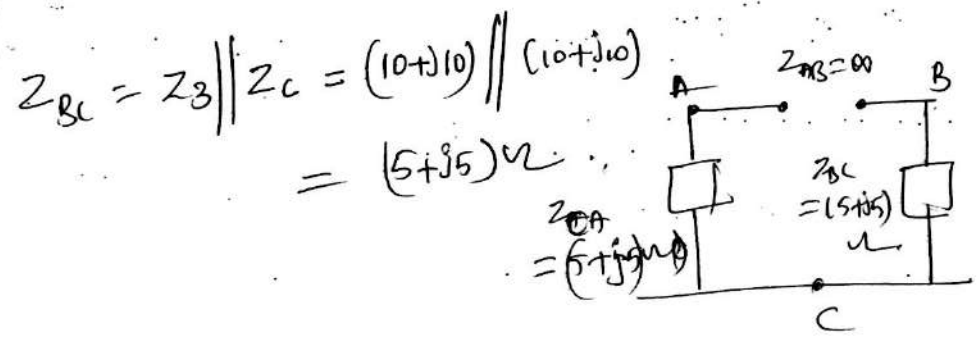 Z_BC = Z_B || Z_C = (10+j10) || (10+j10)
= (5+j5) Ω
A
Z_AB = ∞
B
Z_CA
= (5+j5) Ω
Z_BC
= (5+j5)
Ω
C